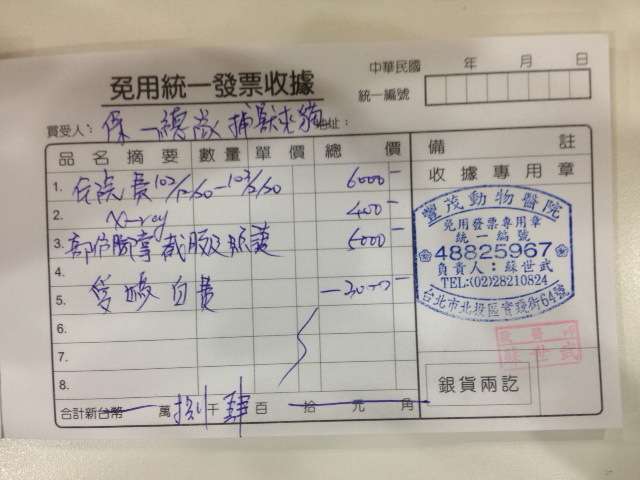 免用統一發票收據
中華民國 年 月 日
統一編號
買受人： 保一總隊 捕獸夾貓 地址：
品名摘要 數量 單價 總價 備註
收據專用章
1. 住院費 6000-
2. X-ray 400-
3. 部份腳掌截肢及 5000-
4.
5. 自費 -3000-
6.
7.
8.
合計新台幣 萬 捌 千 肆 百 拾 元 角
豐茂動物醫院
免用發票專用章
統一編號
48825967
負責人：蘇世武
TEL:(02)28210824
台北市北投區實踐街64號
蘇世武
銀貨兩訖